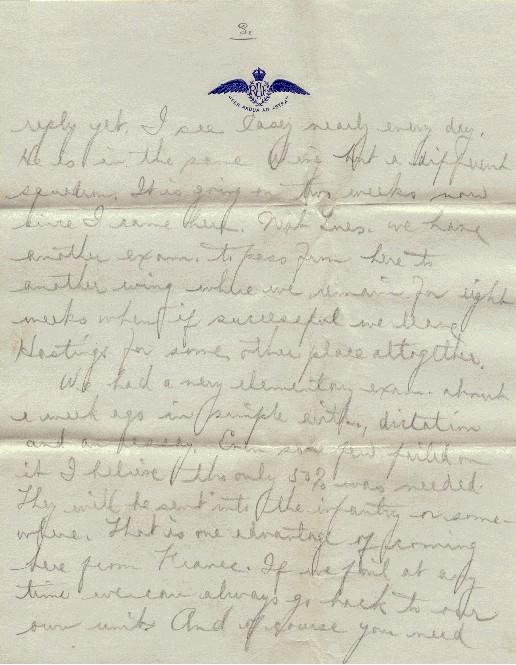 3.
RFC
PER ARDUA AD ASTRA
reply yet. I see Casey nearly every day.
He is in the same Wing but a different
squadron. It is going on two weeks now
since I came here. Next Tues. we have
another exam. to pass from here to
another wing where we remain for eight
weeks when if successful we leave
Hastings for some other place altogether.
We had a very elementary exam. about
a week ago in simple arith., dictation
and an essay. Even so a few failed on
it I believe tho only 50% was needed.
They will be sent into the infantry or some-
where. That is one advantage of coming
here from France. If we fail at any
time we can always go back to our
own units. And of course you need